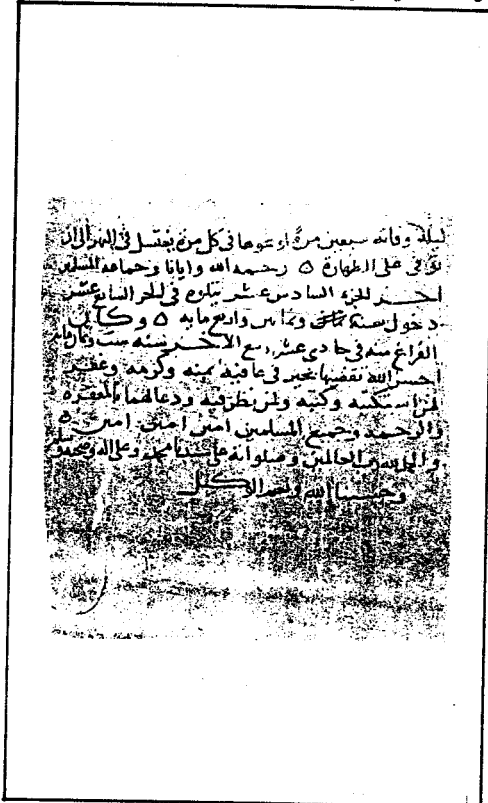 ليلة وفاته سبعين مرة في كل مرة يغتسل في النهر الى ان
توفي على الطهارة ه رحمه الله وايانا وجماعة المسلمين
اخر الجزء السادس عشر يتلوه في الجزء السابع عشر
دخول سنة وثمانين واربع مايه ه وكان
الفراغ منه في حادي عشر ربيع الاخر سنه ست
احسن الله تقضيها بخير في عافية بمنه وكرمه وغفر
لمن استكتبه وكتبه ولمن نظر فيه ودعا لهما بالمغفرة
والرحمه وجميع المسلمين امين امين امين ه
والحمد لله رب العالمين وصلواته على سيدنا محمد وعلى اله وصحبه
وحسبنا الله ونعم الوكيل